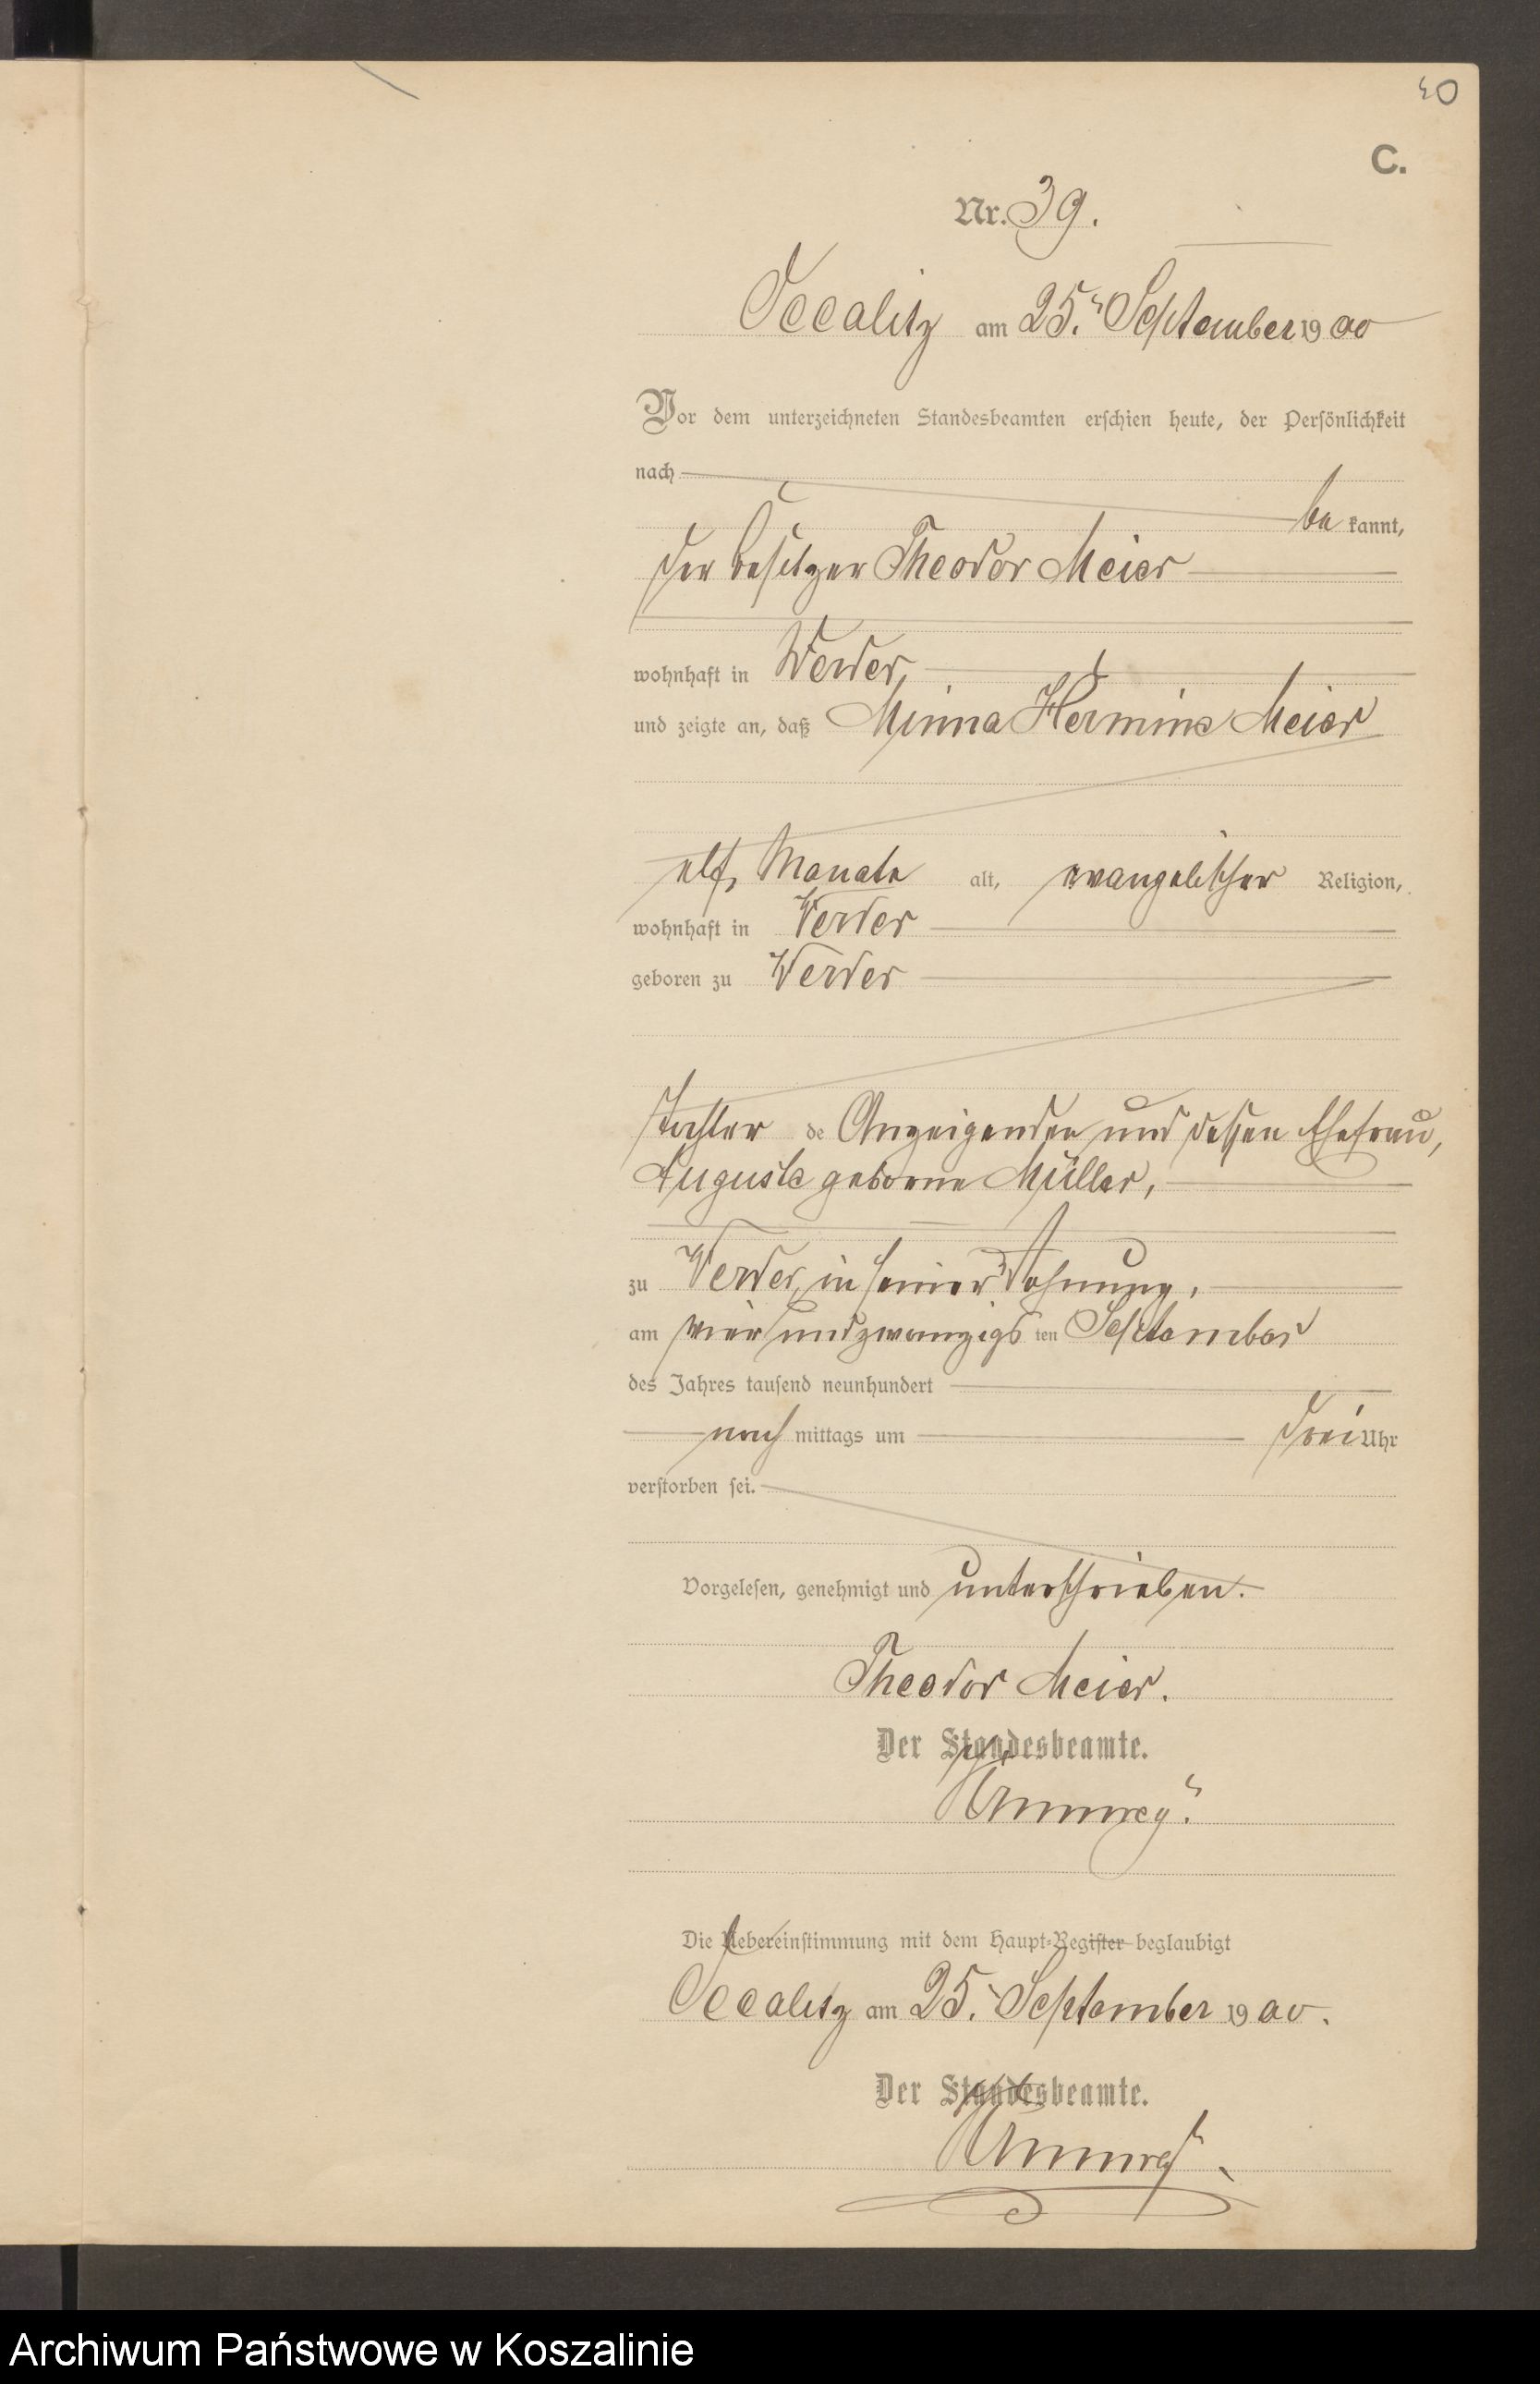 40
C.
Nr. 39.
Occalitz am 25. September 1900
Vor dem unterzeichneten Standesbeamten erschien heute, der Persönlichkeit
nach
be kannt,
der Besitzer Theodor Meier
wohnhaft in Werder,
und zeigte an, daß Minna Hermine Meier
elf Monate alt, evangelischer Religion,
wohnhaft in Werder
geboren zu Werder
Tochter de Anzeigenden und dessen Ehefrau,
Auguste geborne Müller,
zu Werder, in seiner Wohnung,
am vier und zwanzigs ten September
des Jahres tausend neunhundert
nach mittags um drei Uhr
verstorben sei.
Vorgelesen, genehmigt und unterschrieben.
Theodor Meier.
Der Standesbeamte.
Die Uebereinstimmung mit dem Haupt-Register beglaubigt
Occalitz am 25. September 1900.
Der Standesbeamte.
Archiwum Państwowe w Koszalinie